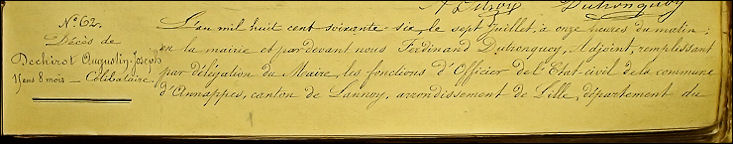 A. Leroy Dutronquoy
N° 62.
Décès de
Dechirot Augustin Joseph
15 ans 8 mois — Célibataire.
L'an mil huit cent soixante-six, le sept Juillet, à onze heures du matin;
en la mairie et pardevant nous Ferdinand Dutronquoy, Adjoint, remplissant
par délégation du Maire, les fonctions d'Officier de l'Etat-civil de la commune
d'Annappes, canton de Lannoy, arrondissement de Lille, département du